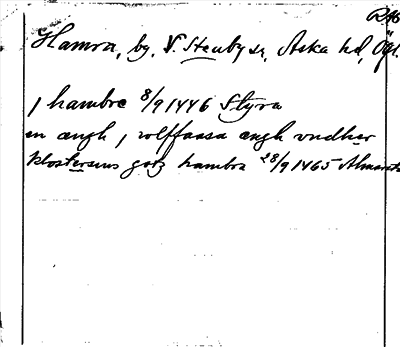 RAB
Hamra, by. V. Stenby sn, Aska hd, Ögl.
j hambre 8/9 1446 Styra
en ængh j rolffsassa ængh vndher
klostersens gotz hambra 28/9 1465